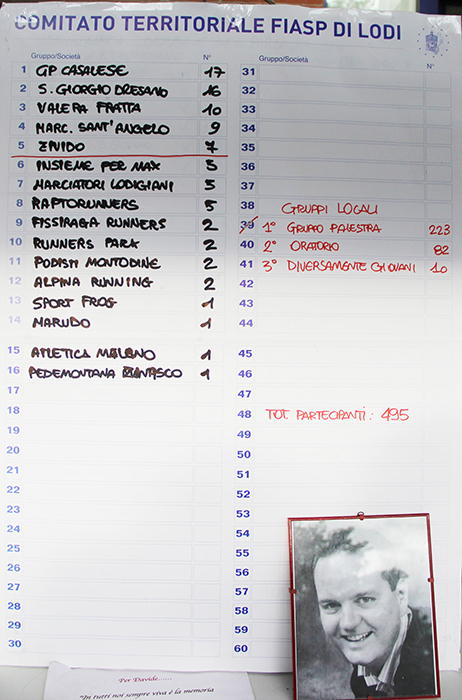 COMITATO TERRITORIALE FIASP DI LODI
Gruppo/Società N°
1 GP CASALESE 17
2 S. GIORGIO DRESANO 16
3 VALERA FRATTA 10
4 MARC. SANT'ANGELO 9
5 ZIVIDO 7
6 INSIEME PER MAX 5
7 MARCIATORI LODIGIANI 5
8 RAPTORUNNERS 5
9 FISSIRAGA RUNNERS 2
10 RUNNERS PARK 2
11 PODISTI MONTODINE 2
12 ALPINA RUNNING 2
13 SPORT FROG 1
14 MARUDO 1
15 ATLETICA MELANO 1
16 PEDEMONTANA 1
17
18
19
20
21
22
23
24
25
26
27
28
29
30
Gruppo/Società N°
31
32
33
34
35
36
37
38 GRUPPI LOCALI
39 1° GRUPPO PALESTRA 223
40 2° ORATORIO 82
41 3° DIVERSAMENTE GIOVANI 10
42
43
44
45
46
47
48 TOT. PARTECIPANTI: 495
49
50
51
52
53
54
55
56
57
58
59
60
Per Davide......
"In tutti noi sempre viva è la memoria